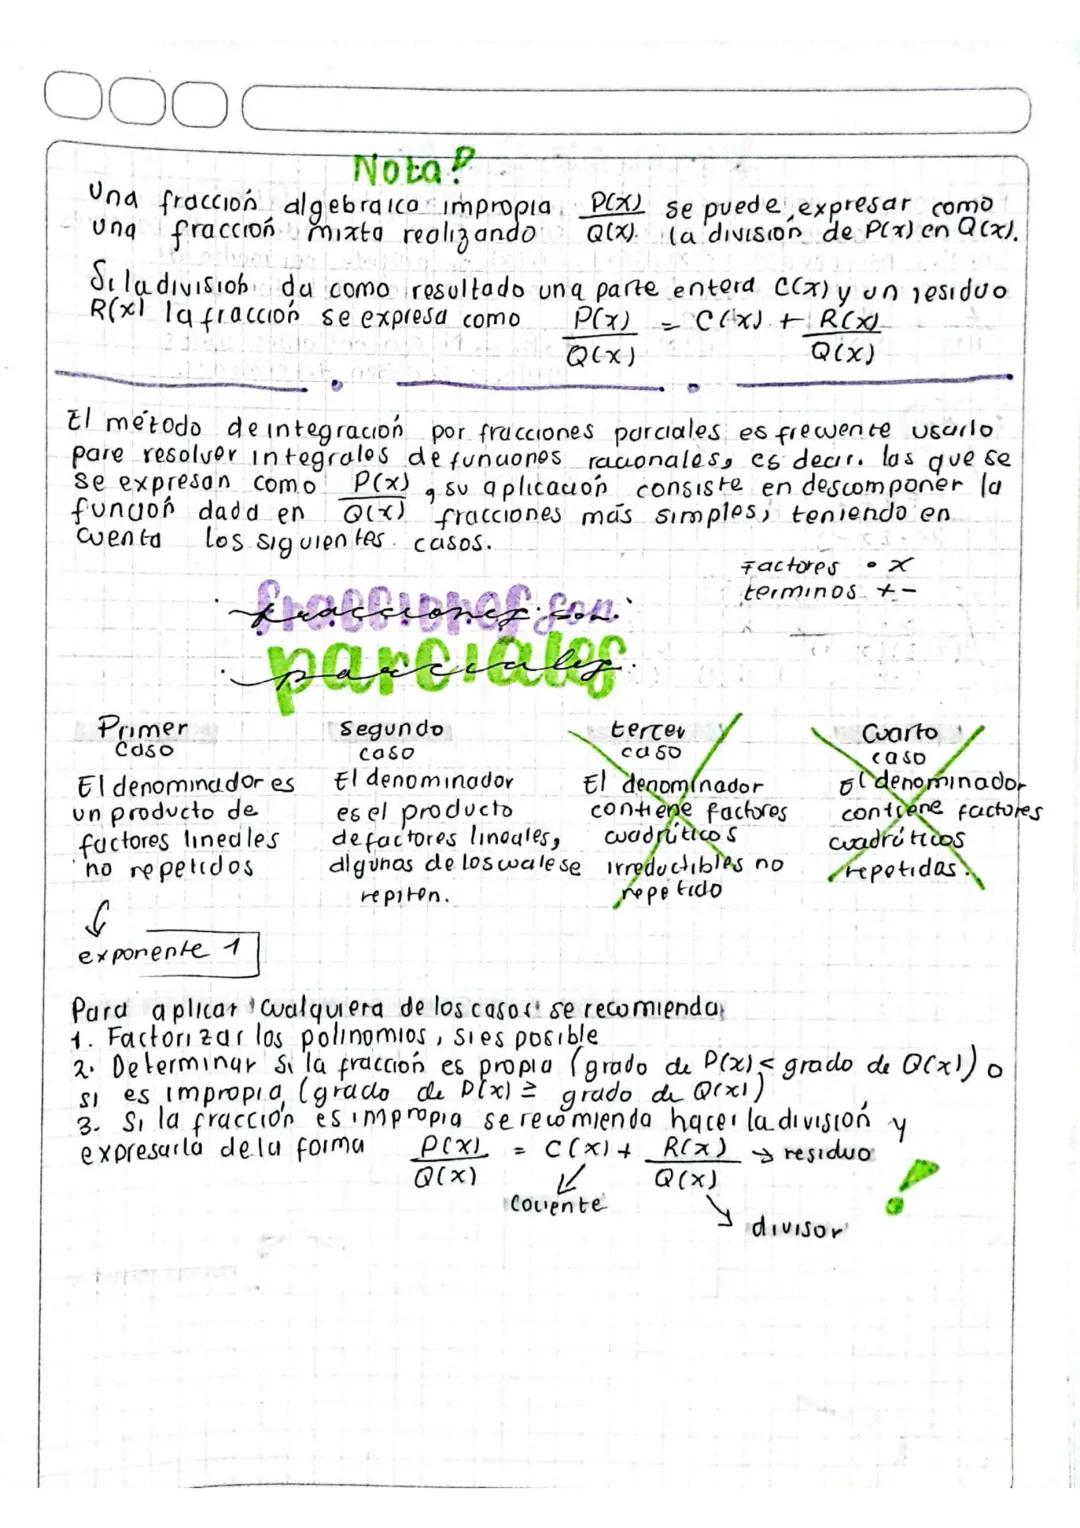 Nota?
Una fracción algebraica impropia P(x)/Q(x) se puede expresar como
una fracción mixta realizando la división de P(x) en Q(x).
Si la división da como resultado una parte entera C(x) y un residuo
R(x) la fracción se expresa como P(x)/Q(x) = C(x) + R(x)/Q(x)
El método de integración por fracciones parciales es frecuente usarlo
pare resolver integrales de funciones racionales, es decir. las que se
se expresan como P(x)/Q(x), su aplicación consiste en descomponer la
función dada en fracciones más simples, teniendo en
cuenta los siguientes casos.
Factores • x
terminos + -
fracciones son
parciales
Primer
caso
El denominador es
un producto de
factores lineales
no repetidos
exponente 1
segundo
caso
El denominador
es el producto
de factores lineales,
algunas de los cuales se
repiten.
tercer
caso
El denominador
contiene factores
cuadráticos
irreductibles no
repetido
Cuarto
caso
El denominador
contiene factores
cuadráticos
repetidas.
Para aplicar cualquiera de los casos se recomienda
1. Factorizar los polinomios, si es posible
2. Determinar si la fracción es propia (grado de P(x) < grado de Q(x)) o
si es impropia (grado de P(x) ≥ grado de Q(x))
3. Si la fracción es impropia se recomienda hacer la división y
expresarla de la forma P(x)/Q(x) = C(x) + R(x)/Q(x) → residuo
Cociente
divisor
!